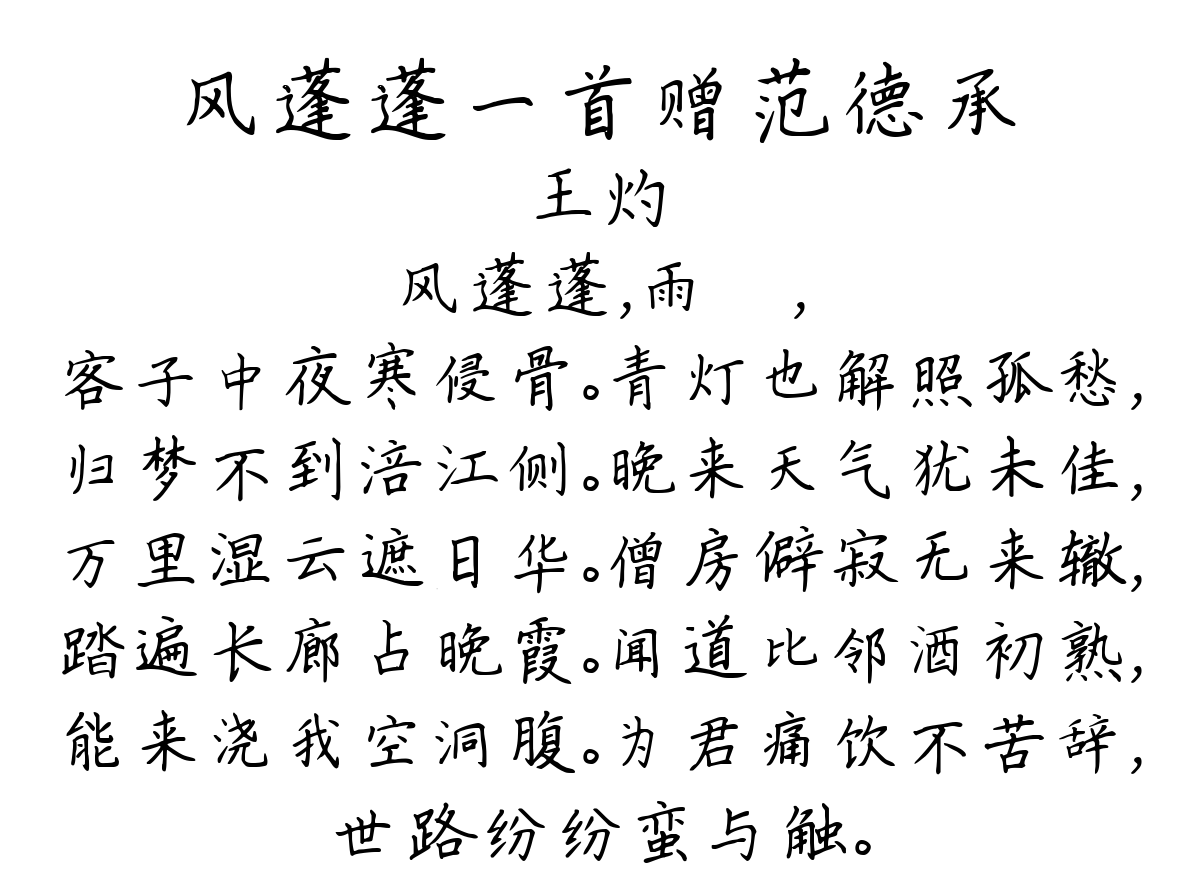 风蓬蓬一首赠范德承
王灼
风蓬蓬,雨　,
客子中夜寒侵骨。青灯也解照孤愁,
归梦不到涪江侧。晚来天气犹未佳,
万里湿云遮日华。僧房僻寂无来辙,
踏遍长廊占晚霞。闻道比邻酒初熟,
能来浇我空洞腹。为君痛饮不苦辞,
世路纷纷蛮与触。